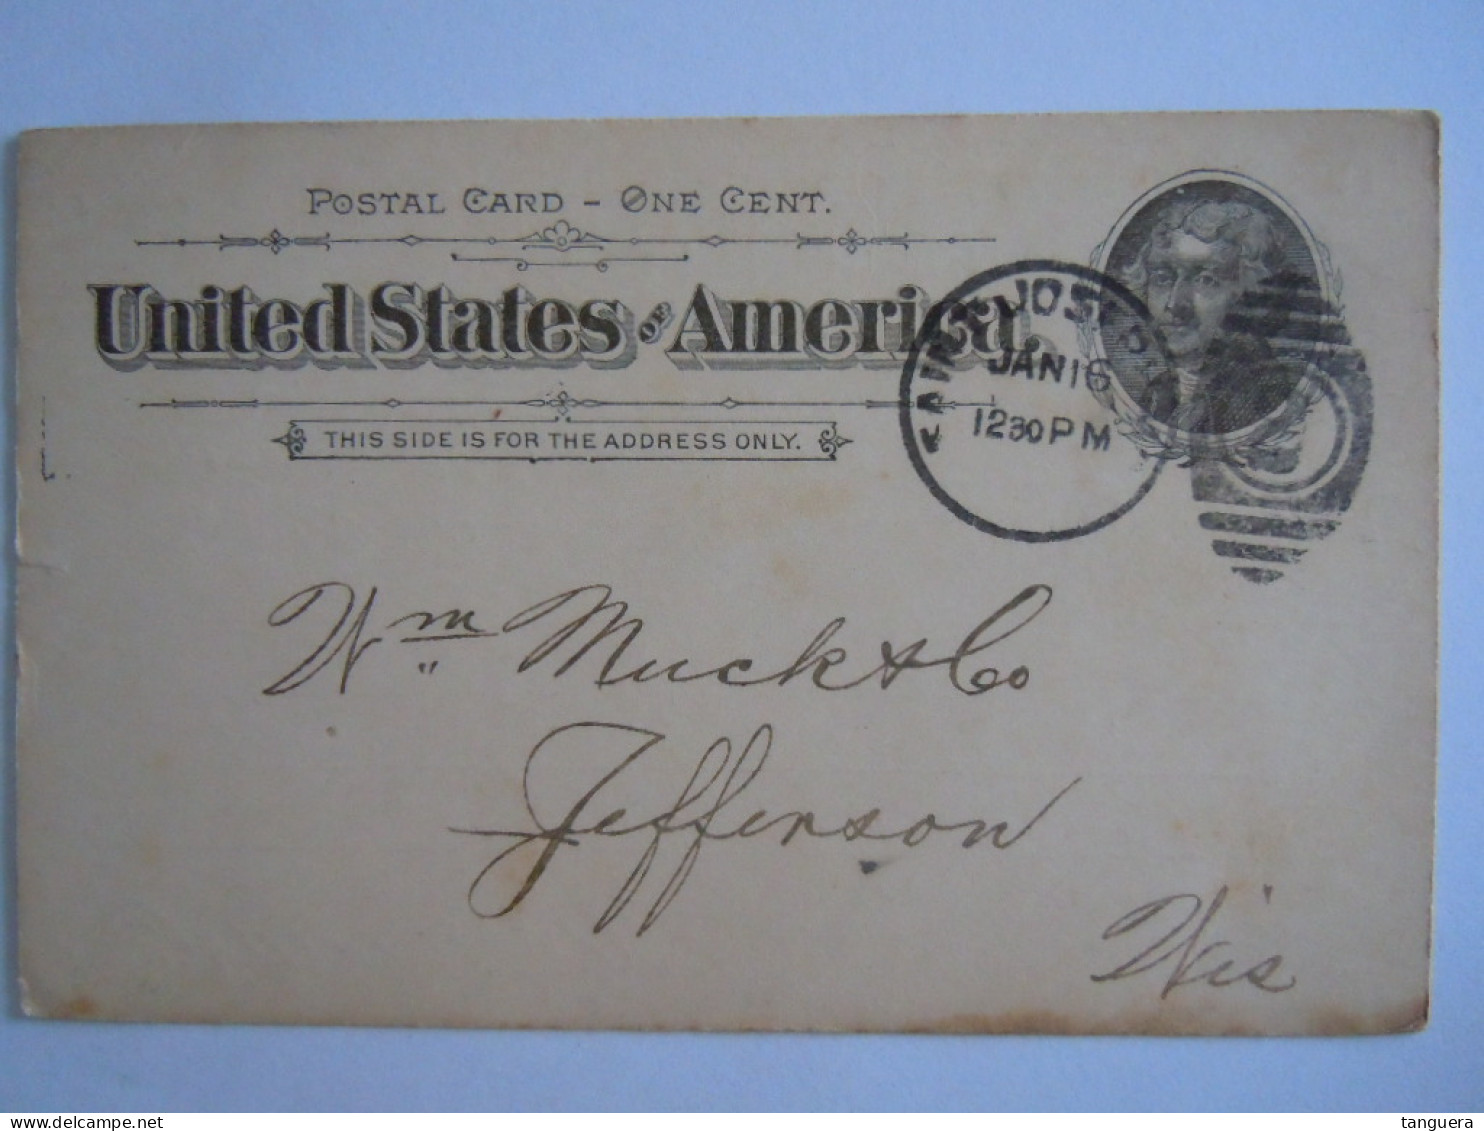 POSTAL CARD - ONE CENT.
United States OF America.
THIS SIDE IS FOR THE ADDRESS ONLY.
SAINT JOSEPH
JAN 16
1230 PM
Wm Muck & Co
Jefferson
Wis
delcampe.net
tanguera